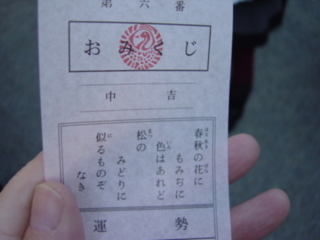 第六番
おみくじ
中吉
春秋の花に
もみぢに
色はあれど
松の
みどりに
似るものぞ
なき
運勢